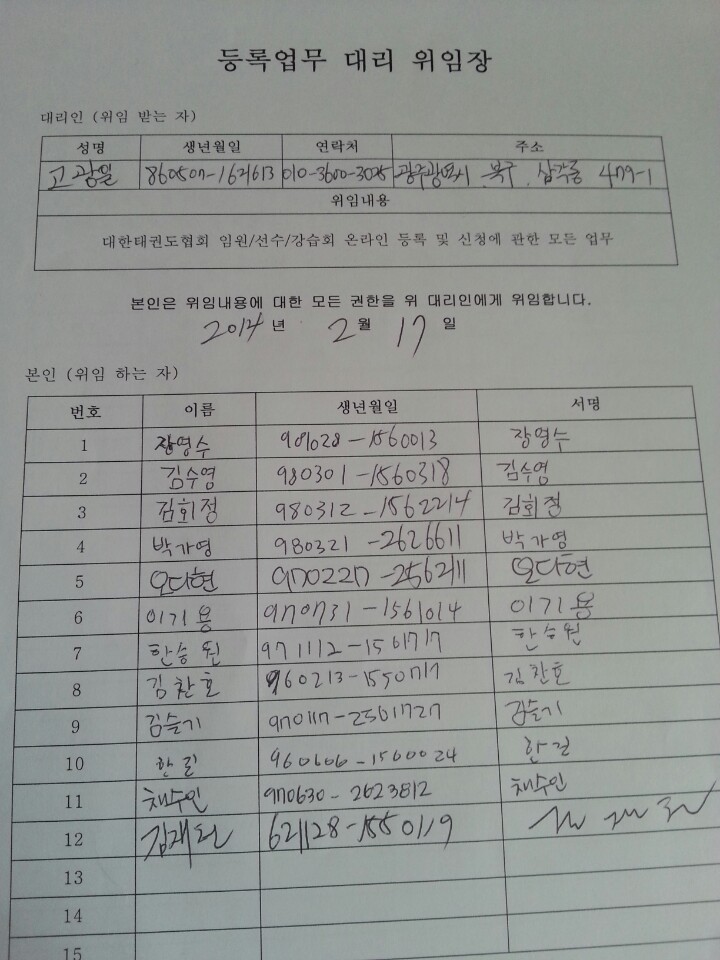 등록업무 대리 위임장
대리인 (위임 받는 자)
성명 생년월일 연락처 주소
고광일 860507-1621613 010-3600-3025 광주광역시 북구 삼각동 479-1
위임내용
대한태권도협회 임원/선수/강습회 온라인 등록 및 신청에 관한 모든 업무
본인은 위임내용에 대한 모든 권한을 위 대리인에게 위임합니다.
2014 년 2 월 17 일
본인 (위임 하는 자)
번호 이름 생년월일 서명
1 장영수 장영수
2 김수영 980301-1560318 김수영
3 김희정 980312-1562214 김희정
4 박가영 980321-2626611 박가영
5 오다현 970227-256211 오다현
6 이기용 970731-1561014 이기용
7 한승원 971112-1561717 한승원
8 김찬호 960213-1550717 김찬호
9 김슬기 970117-2561727 김슬기
10 한길 960606-1560024 한길
11 채수인 970630-2623812 채수인
12 621128-1550119
13
14
15